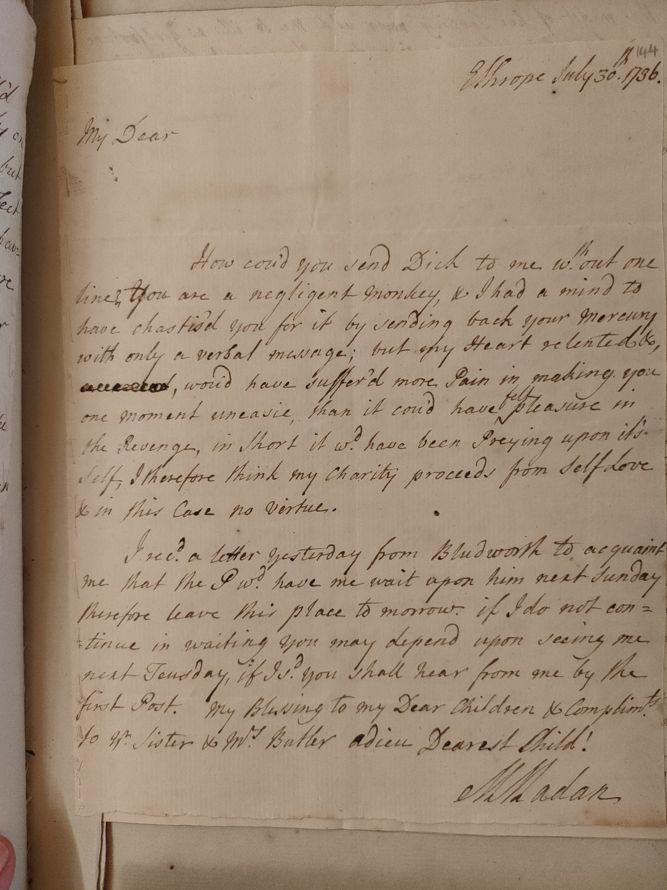 144
Ethrope July 30.th 1736.
My Dear
How cou'd you send Dick to me w.th out one
line, You are a negligent monkey, & I had a mind to
have chastis'd you for it by sending back your Mercury
with only a verbal message; but my Heart relented &,
, wou'd have suffer'd more Pain in making you
one moment uneasie, than it cou'd have pleasure in
the Revenge, in short it w.d have been Preying upon it's
self, I therefore think my Charity proceeds from self Love
& in this Case no virtue.
I rec.d a letter yesterday from Bludworth to acquaint
me that the P w.d have me wait upon him next Sunday
therefore leave this place to morrow. if I do not con=
=tinue in waiting you may depend upon seeing me
next Teusday, if I s.d you shall hear from me by the
first Post. My Blessing to my Dear Children & Complim.ts
to Yr. Sister & Mrs Butler adieu Dearest Child!
MMadan
'd
but